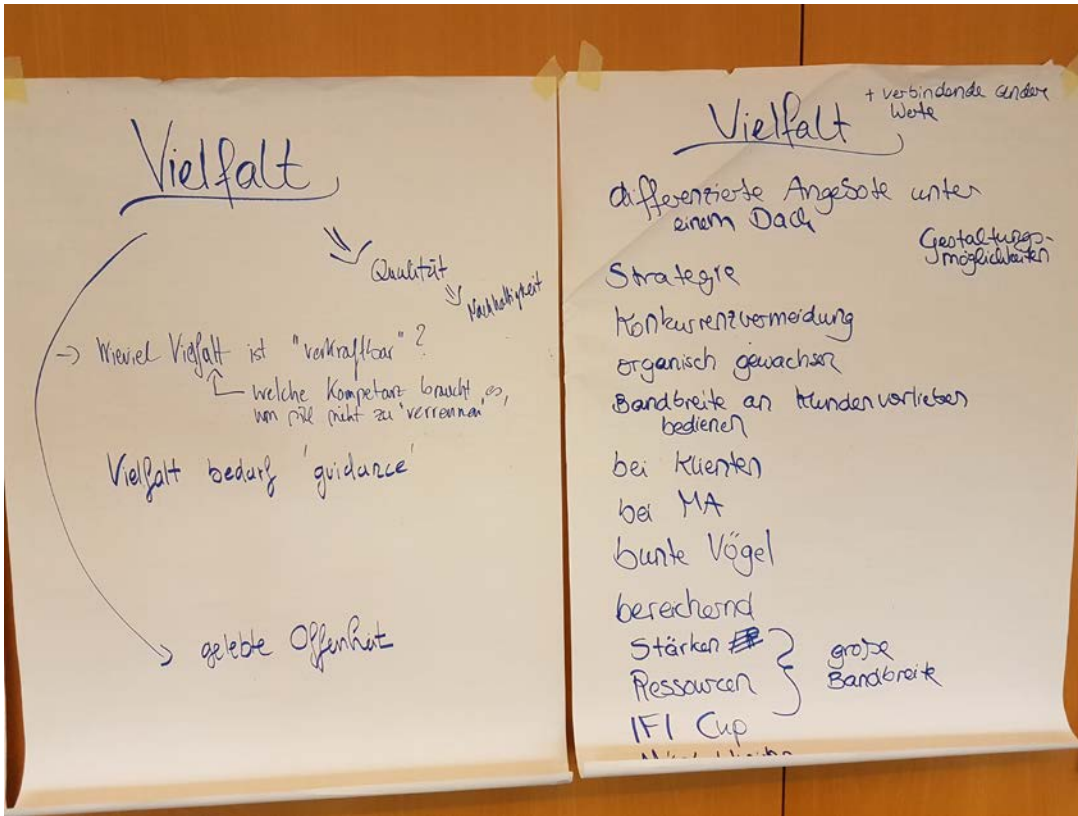 Vielfalt
Qualität
Nachhaltigkeit
→ Wieviel Vielfalt ist "verkraftbar"?
welche Kompetenz braucht es,
um sich nicht zu "verrennen"
Vielfalt bedarf 'guidance'
gelebte Offenheit
Vielfalt
+ verbindende andere
Werte
differenzierte Angebote unter
einem Dach
Gestaltungs-
möglichkeiten
Strategie
Konkurrenzvermeidung
organisch gewachsen
Bandbreite an Kundenvorlieben
bedienen
bei Klienten
bei MA
bunte Vögel
bereichernd
Stärken
Ressourcen
große
Bandbreite
IFI Cup